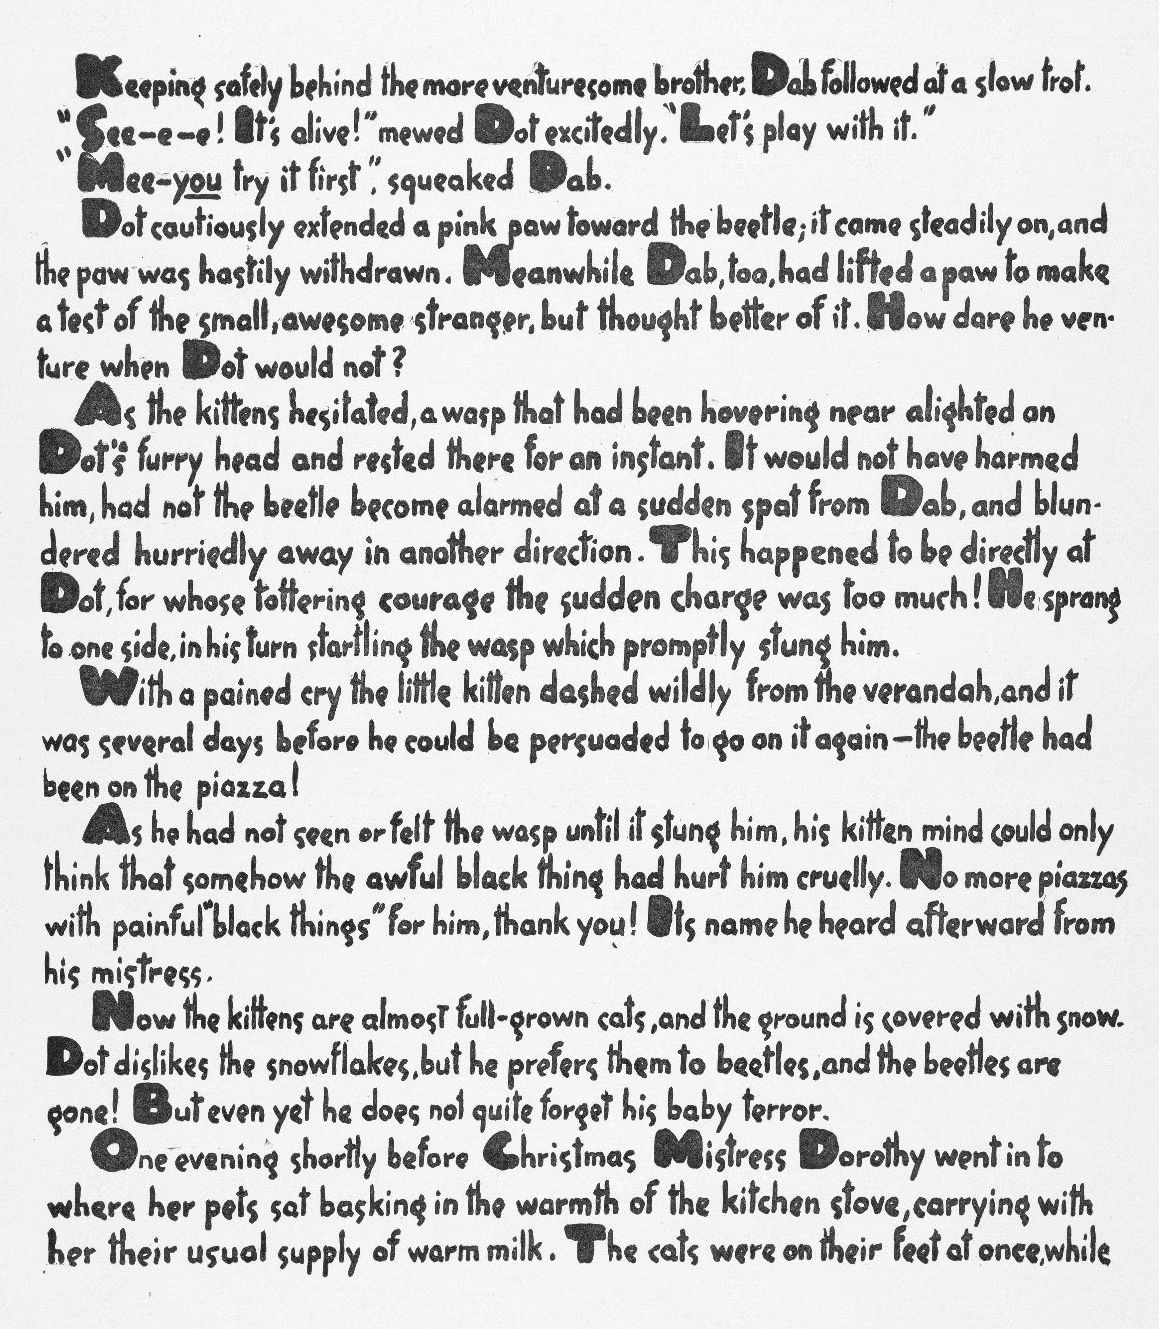 Keeping safely behind the more venturesome brother, Dab followed at a slow trot.
"See-e-e! It's alive!" mewed Dot excitedly. "Let's play with it."
"Mee-you try it first", squeaked Dab.
Dot cautiously extended a pink paw toward the beetle; it came steadily on, and
the paw was hastily withdrawn. Meanwhile Dab, too, had lifted a paw to make
a test of the small, awesome stranger, but thought better of it. How dare he ven-
ture when Dot would not?
As the kittens hesitated, a wasp that had been hovering near alighted on
Dot's furry head and rested there for an instant. It would not have harmed
him, had not the beetle become alarmed at a sudden spat from Dab, and blun-
dered hurriedly away in another direction. This happened to be directly at
Dot, for whose tottering courage the sudden charge was too much! He sprang
to one side, in his turn startling the wasp which promptly stung him.
With a pained cry the little kitten dashed wildly from the verandah, and it
was several days before he could be persuaded to go on it again-the beetle had
been on the piazza!
As he had not seen or felt the wasp until it stung him, his kitten mind could only
think that somehow the awful black thing had hurt him cruelly. No more piazzas
with painful "black things" for him, thank you! Its name he heard afterward from
his mistress.
Now the kittens are almost full-grown cats, and the ground is covered with snow.
Dot dislikes the snowflakes, but he prefers them to beetles, and the beetles are
gone! But even yet he does not quite forget his baby terror.
One evening shortly before Christmas Mistress Dorothy went in to
where her pets sat basking in the warmth of the kitchen stove, carrying with
her their usual supply of warm milk. The cats were on their feet at once, while